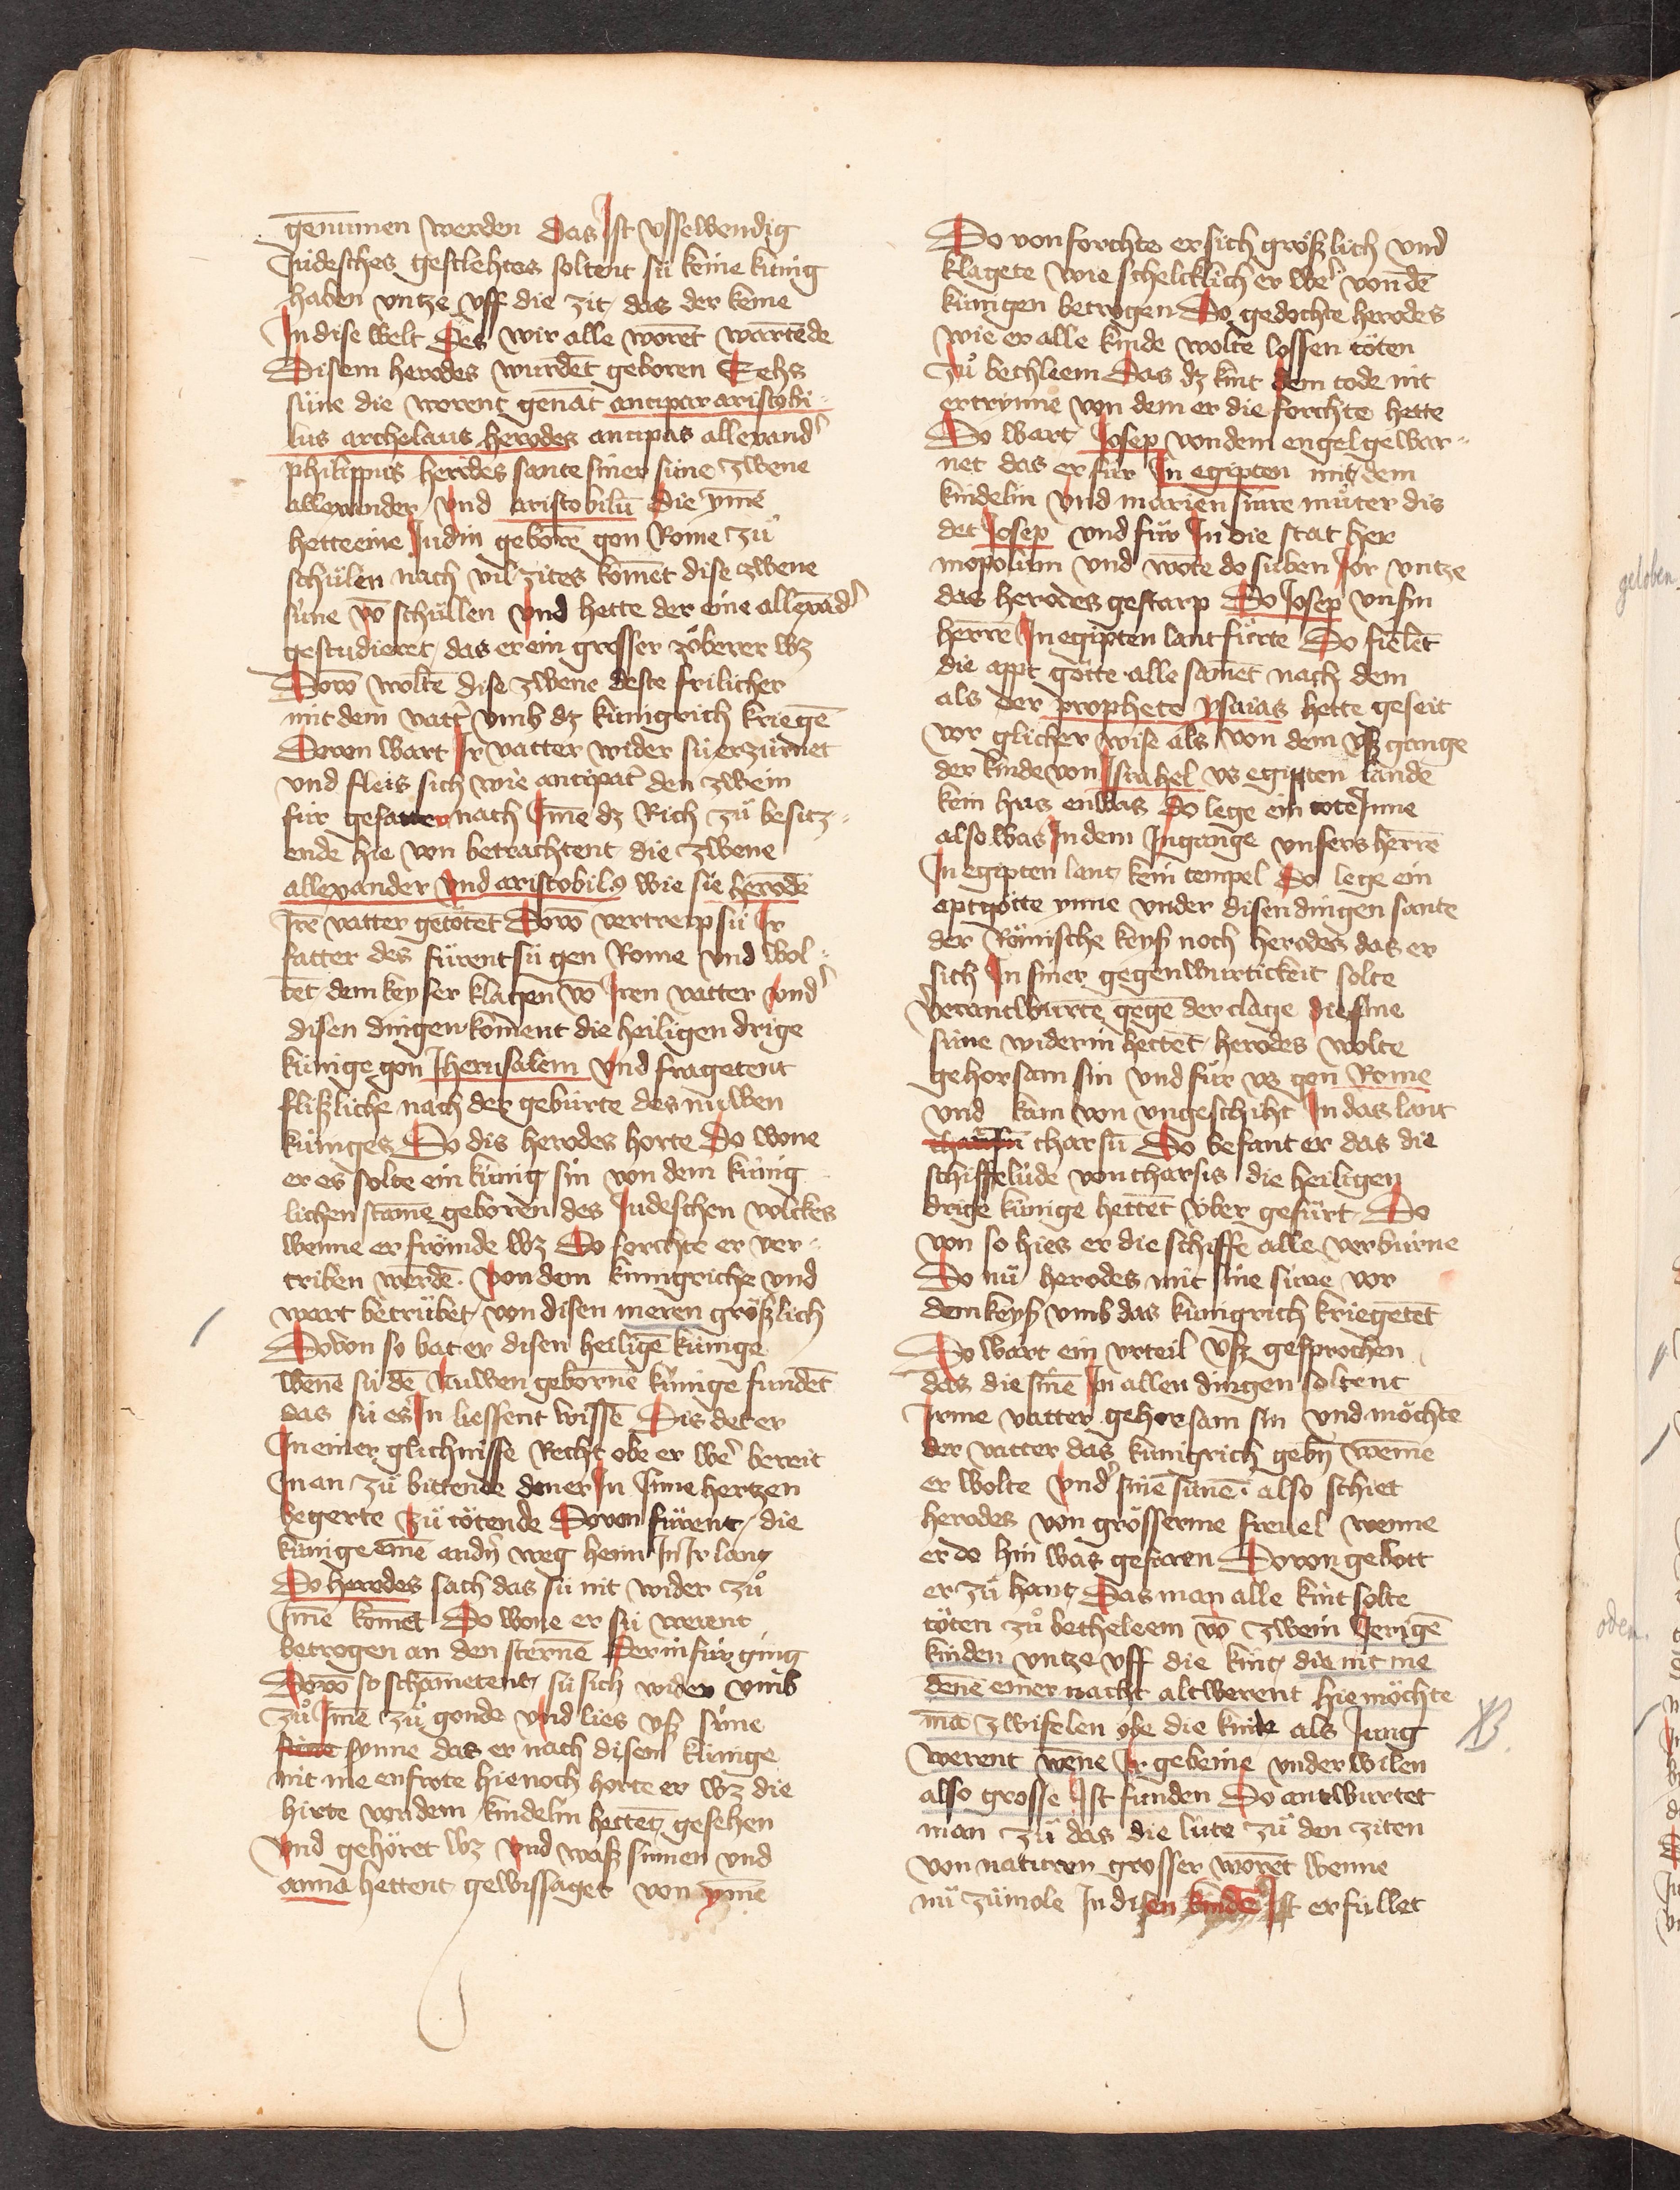 genummen werden das Ist vssewendig
Judesches geslehtes soltent sú keine kúnig
haben vntze vff die zit das der keme
In dise welt Des wir alle worēt wartēde
Disem herodes wurdēt geboren Sehs
súne die worent genāt antipar aristobi-
lus archelaus herodes antipas allexandʼ
philippus herodes sante siner súne zwene
allexander vnd aristobilū die ymē
hette eine Judin geborē gon Rome zů
schůlen nach vil zites komēt dise zwene
súne vō schůllen vnd hette der eine allexādʼ
gestudieret das er ein grosser zöberer wz
Dorō woltē dise zwene deste frilicher
mit dem vattʼ vmb dz kúnigrich kriegē
Dovon wart Ir vatter wider sú erzúrnet
vnd fleis sich wie antipatʼ den zwein
fúr gesatter nach Jmē dz Rich zů besitz-
ende hie von betrachtent die zwene
allexander vnd aristobilꝰ wie sie herodē
Irē vatter getötēt Dorō vertreip sú Ir
fatter des fůrent sú gen Rome vnd wol-
tēt dem keyser klagen vō Iren vatter vndʼ
disen dingen koment die heiligen drige
kúnige gon Jherusalem vnd fragetent
flißliche nach der gebúrte des nuwen
kúniges Do dis herodes horte Do wone
er es solte ein kúnig sin von dem kúnig
lichen stāme geboren des Judeschen volckes
wenne er frömde wz Do forchte er ver-
triben werdē von dem kúnigriche vnd
wart betrúbet von disen meren größlich
Dovon so bat er disen heiligē kúnige
wēne sú dē Nuwen gebornē kúnige fundēt
das sú es In liessent wissē Dis det er
In einer glichnisse Recht obe er wē bereit
In an zů bittende den er In sime hertzen
begerte zů tötende Dovon fůrent die
kúnige einē andʼn weg heim In Ir lant
Do herodes sach das sú nit wider zů
Jmē komēt Do wone er sú werent
betrogen an den sternē Der in fúr ging
Dorō so schāmetent sú sich wider vmb
zů Jmē zů gonde vnd lies vß sime
synne das er nach disem kúnige
nit me enfrote hie noch horte er wz die
hirte von dem kindelin hettēt gesehen
vnd gehöret wz vnd waz simen vnd
anna hettent gewissaget von ymē
Do von forchte er sich größlich vnd
klagete wie schelcklich er wēʼ von dē
kúnigen betrogen Do gedochte herodes
wie er alle kinde wolte lossen töten
zů bethleem Das dz kint dem tode nit
ertrynne von dem er die forchte hette
Do wart Josep von dem engel gewar-
net das er fúr In egipten mit dem
kindelin vnd marien sinre můter dis
det Josep vnd fůr In die stat her
mopolim vnd wote do siben Jor vntze
das herodes gestarp Do Josep vnsin
herrē In egipten lant fůrte Do fielēt
die appt götte alle samēt nach dem
als der prophete ysaias hette geseit
vor glicher wise als von dem vßgange
der kinde von Israhel vs egipten lande
kein hus enwas do lege ein tote Inne
also was In dem Ingange vnsers herrē
In egipten lant kein tempel do lege ein
aptgötte ynne vnder disen dingen sante
der Römische keyß noch herodes das er
sich In siner gegenwurtickeit solte
verantwurte gegē der clage die sine
súne wider in hettēt herodes wolte
gehorsam sin vnd fůr vs gon Rome
vnd kam von vngeschiht In das lant
tharsū Do befant er das die
schiffelúde von tharsis die heiligen
drige kúnige hettēt úber gefúrt Do
von so hies er die schiffe alle verbúrne
Do nů herodes mit sine súne vor
dem keyß vmb das kúnigrich kriegetēt
Do wart ein vrteil vsz gesprochen
das die sinē In allen dingen soltent
Irme vatter gehorsam sin vnd möchte
der vatter das kúnigrich gebn wemē
er wolte vndʼ sinē súnē also schiet
herodes von grösserme freuel wenne
er do hin was gefaren Dovon gebott
er zů hant Das man alle kint solte
töten zů betheleem vō zwein Jerigē
kinden vntze vff die kint die nit me
denē einer nacht alt werent hie möchte
mā zwifelen obe die kinde als Jung
werent wēne Ir gebeine vnder wilen
also grosse Ist funden Do antwurtet
man zů das die lúte zů den ziten
von naturen grosser worēt wenne
nů zůmole In disen kindē Ist erfúllet
geloben
oden